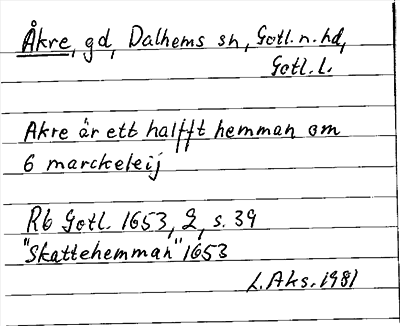 Åkre, gd, Dalhems sn, Gotl. n. hd,
Gotl. L.
Akre är ett halfft hemman om
6 marckeleij
Rb Gotl. 1653, 2, s. 39
"Skattehemman" 1653
L. Aks. 1981